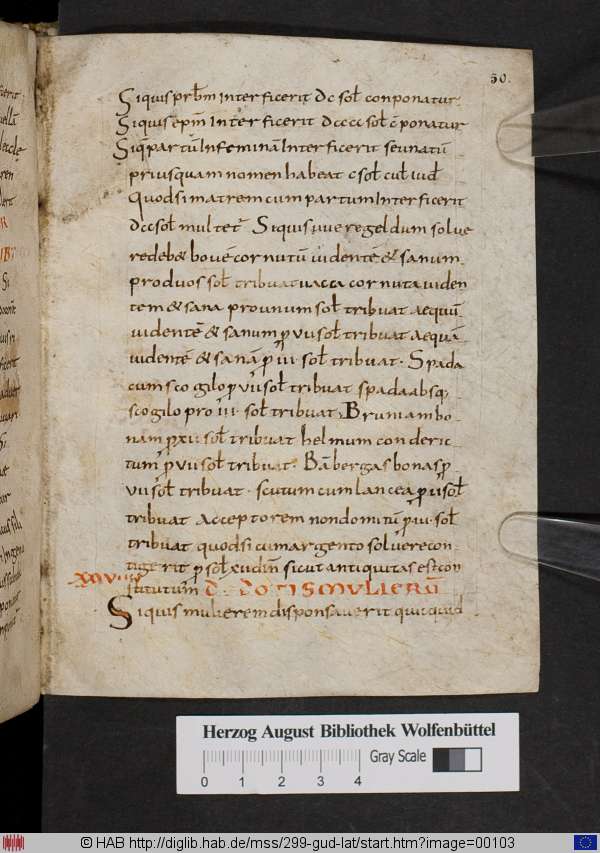 50.
Siquis prbm interficerit dc sol conponatur.
Siquis epm interficerit dcccc sol cponatur
Siqs partu Infeminā Interficerit seu natū
priusquam nomen habeat c sol cul iud
quodsi matrem cum partum Interficerit
dcc sol multetr Siquis uueregeldum solue
redebet bouē cornutū uidentē & sanum
pro duos sol tribuat uacca cornuta uiden
tem & sana pro unum sol tribuat aequū
uidentē & sanum p vii sol tribuat aequā
uidentē & sanā p iii sol tribuat. Spada
cum scogilo p vii sol tribuat spada absq;
scogilo pro iii sol tribuat. Bruniam bo
nam p xii sol tribuat helmum conderic
tum p vii sol tribuat. Bābergas bonas p
vii sol tribuat. scutum cum lancea p ii sol
tribuat acceptorem nondomitū p iii sol
tribuat quodsi cum argento soluere con
tigerit p sol xii din sicut antiquitas est con
stitutum DE DOTIS MULIERŪ
Siquis mulierem disponsauerit quicquid
Herzog August Bibliothek Wolfenbüttel
Gray Scale
0 1 2 3 4
© HAB http://diglib.hab.de/mss/299-gud-lat/start.htm?image=00103